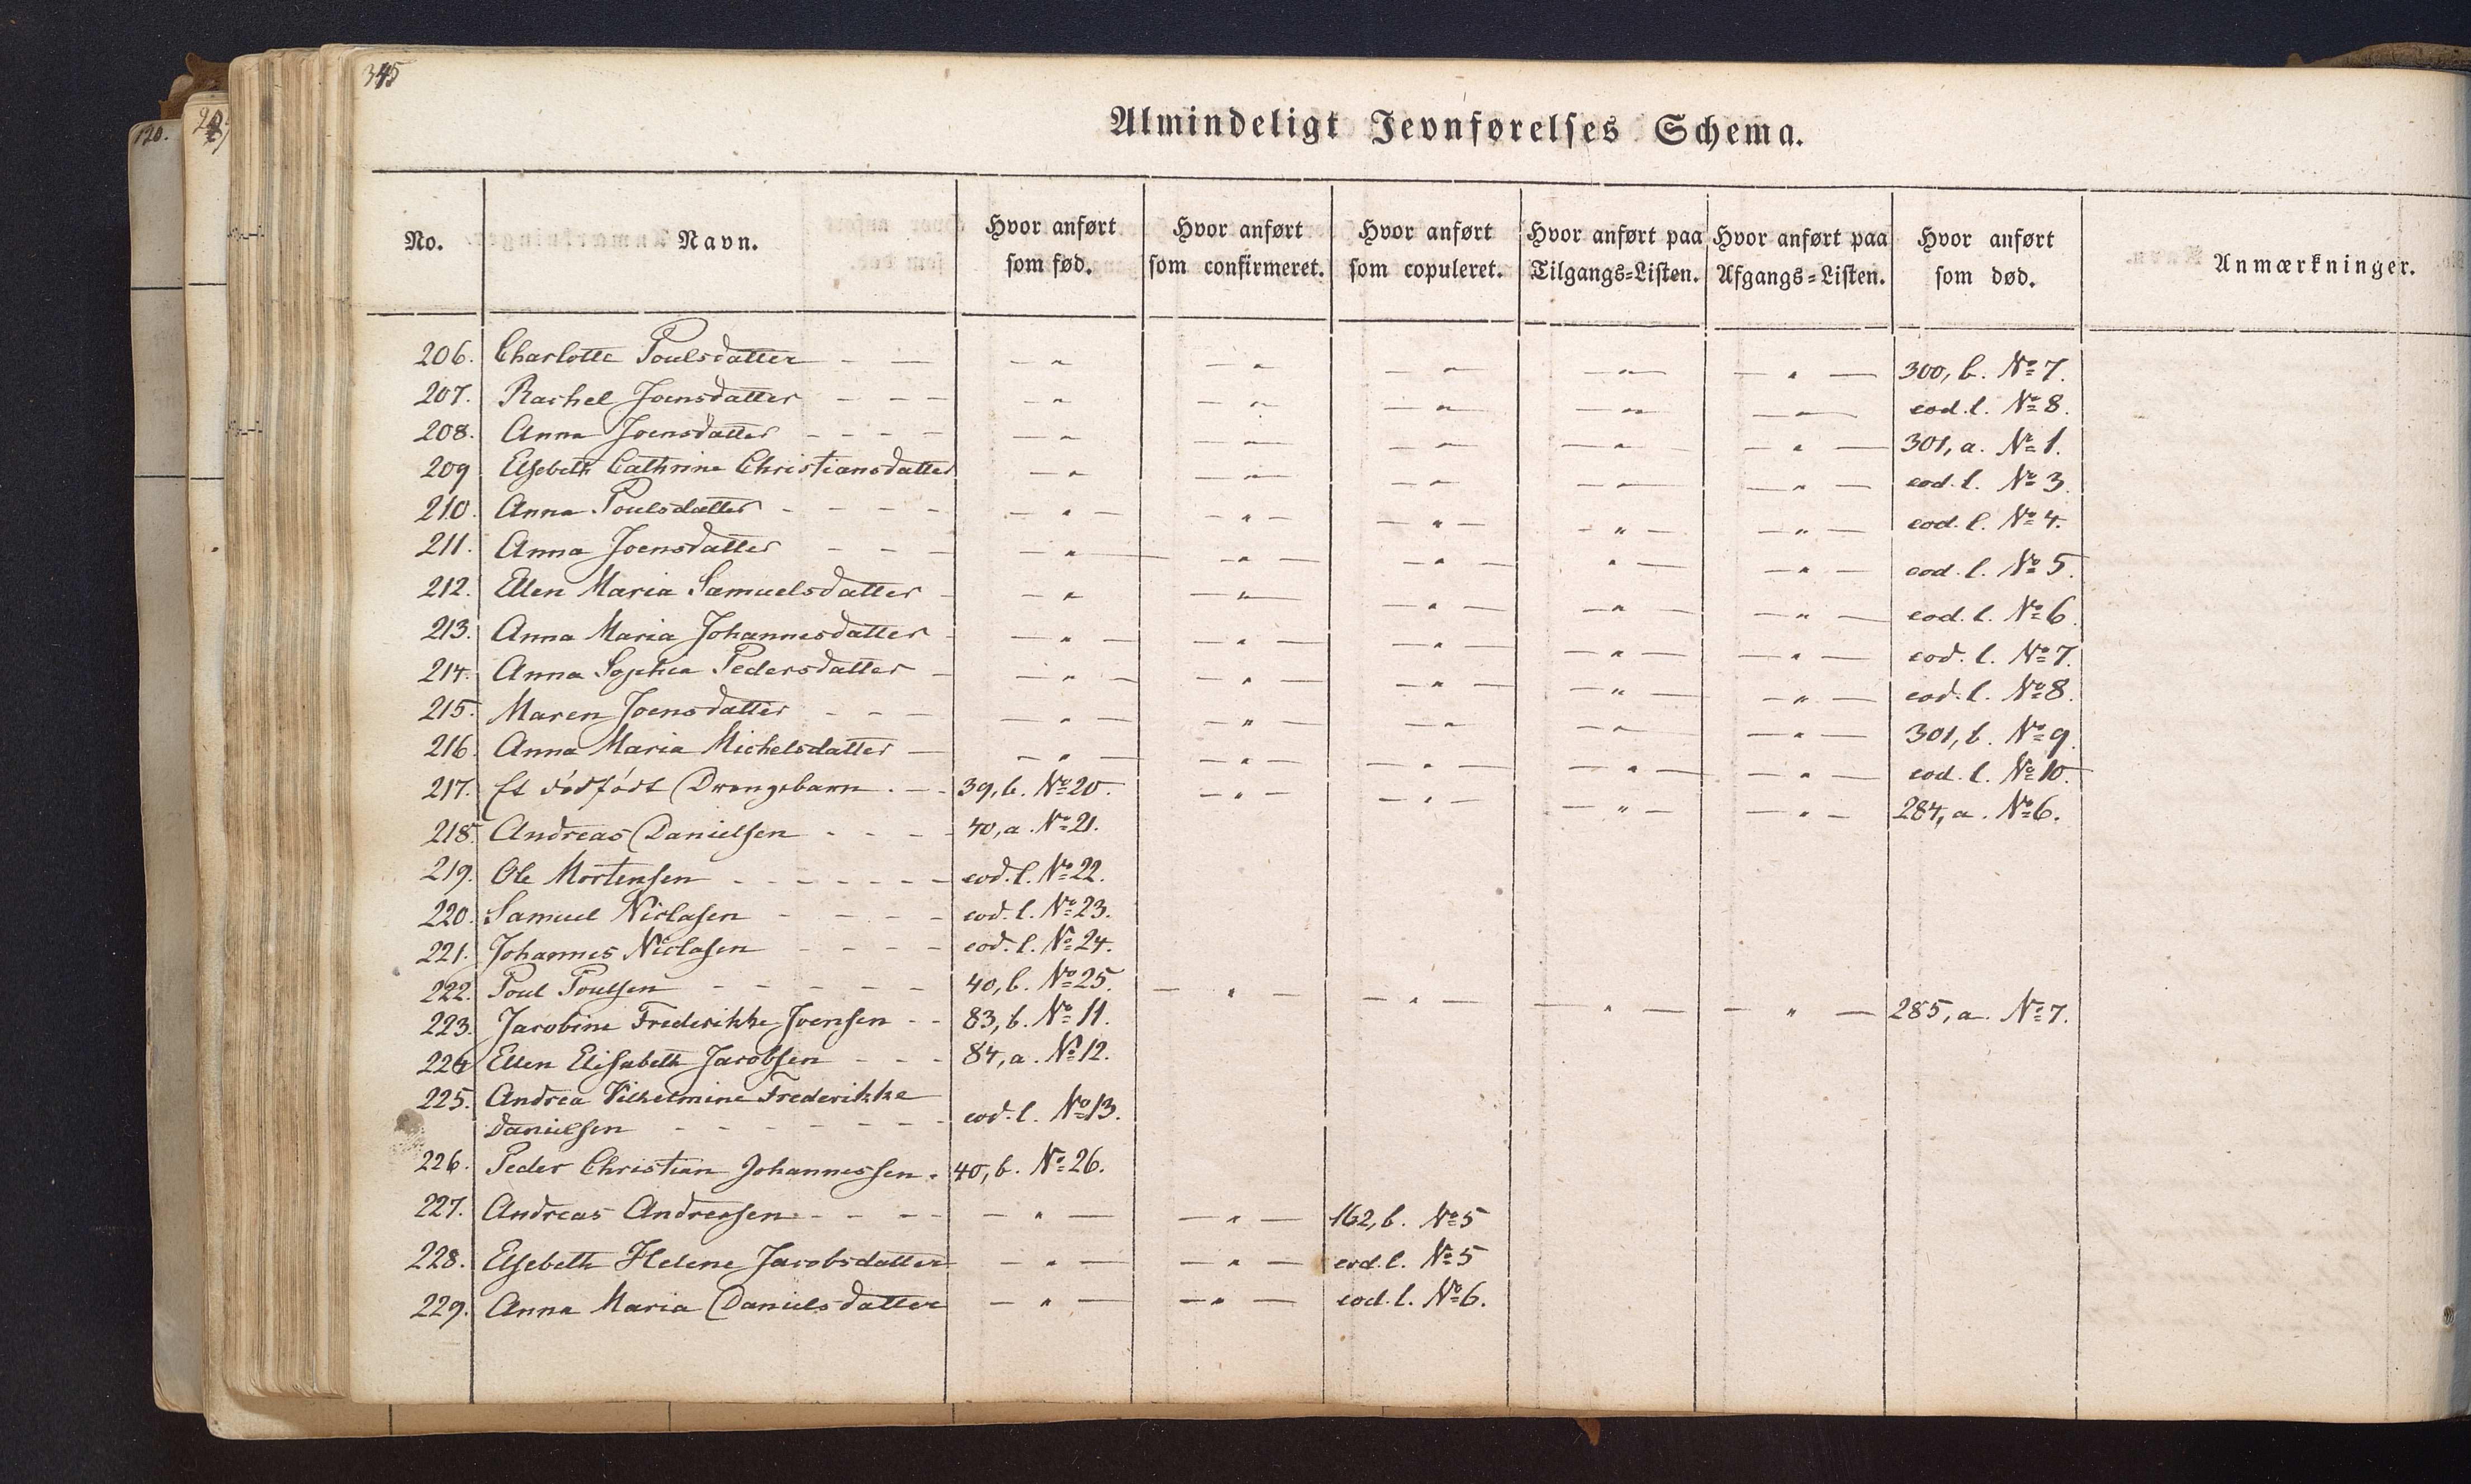 345
120.
Almindeligt Jevnførelses Schema.
No. Navn. Hvor anført som fød. Hvor anført som confirmeret. Hvor anført som copuleret. Hvor anført paa Tilgangs=Listen. Hvor anført paa Afgangs=Listen. Hvor anført som død. Anmærkninger.
206. Charlotte Poulsdatter - — — " — " — — " — — " — — " — 300, b. No 7.
207. Rachel Joensdatter - - - — " — " — — " — — " — — " — eod. l. No 8.
208. Anna Joensdatter - - - - — " — — " — — " — — " — — " — 301, a. No 1.
209 Elsebeth Cathrine Christiansdatter — " — — " — — " — — " — — " — eod. l. No 3.
210. Anna Poulsdatter - - - - — " — — " — — " — — " — — " — eod. l. No 4.
211. Anna Joensdatter - - - — " — — " — — " — " — — " — eod. l. No 5.
212. Ellen Maria Samuelsdatter - — " — — " — — " — — " — — " — eod. l. No 6.
213. Anna Maria Johannesdatter - — " — — " — — " — — " — — " — eod. l. No 7.
214. Anna Sophia Pedersdatter - — " — — " — — " — — " — — " — eod. l. No 8.
215. Maren Joensdatter - - - — " — — " — — " — — " — — " — 301, b. No 9.
216. Anna Maria Michelsdatter — — " — — " — — " — — " — — " — eod. l. No 10.
217. Et dødfødt Drengebarn . - - 39, b. No 20. — " — — " — — " — — " — 284, a. No 6.
218. Andreas Danielsen - - - - 40, a. No 21.
219. Ole Mortensen - - - - - - eod. l. No 22.
220. Samuel Niclasen - - - - eod. l. No 23.
221. Johannes Niclasen - - - - eod. l. No 24.
222. Poul Poulsen - - - - - 40, b. No 25. — " — — " — — " — — " — 285, a. No 7.
223. Jacobine Frederikke Joensen - - 83, b. No 11.
224 Ellen Elisabeth Jacobsen - - - 84, a. No 12.
225. Andrea Vilhelmine Frederikke
Danielsen - - - - - - - eod. l. No 13.
226. Peder Christian Johannessen . 40, b. No 26.
227. Andreas Andreasen - - - - — " — — " — 162, b. No 5
228. Elsebeth Helene Jacobsdatter — " — — " — eod. l. No 5
229. Anna Maria Danielsdatter — " — — " — eod. l. No 6.